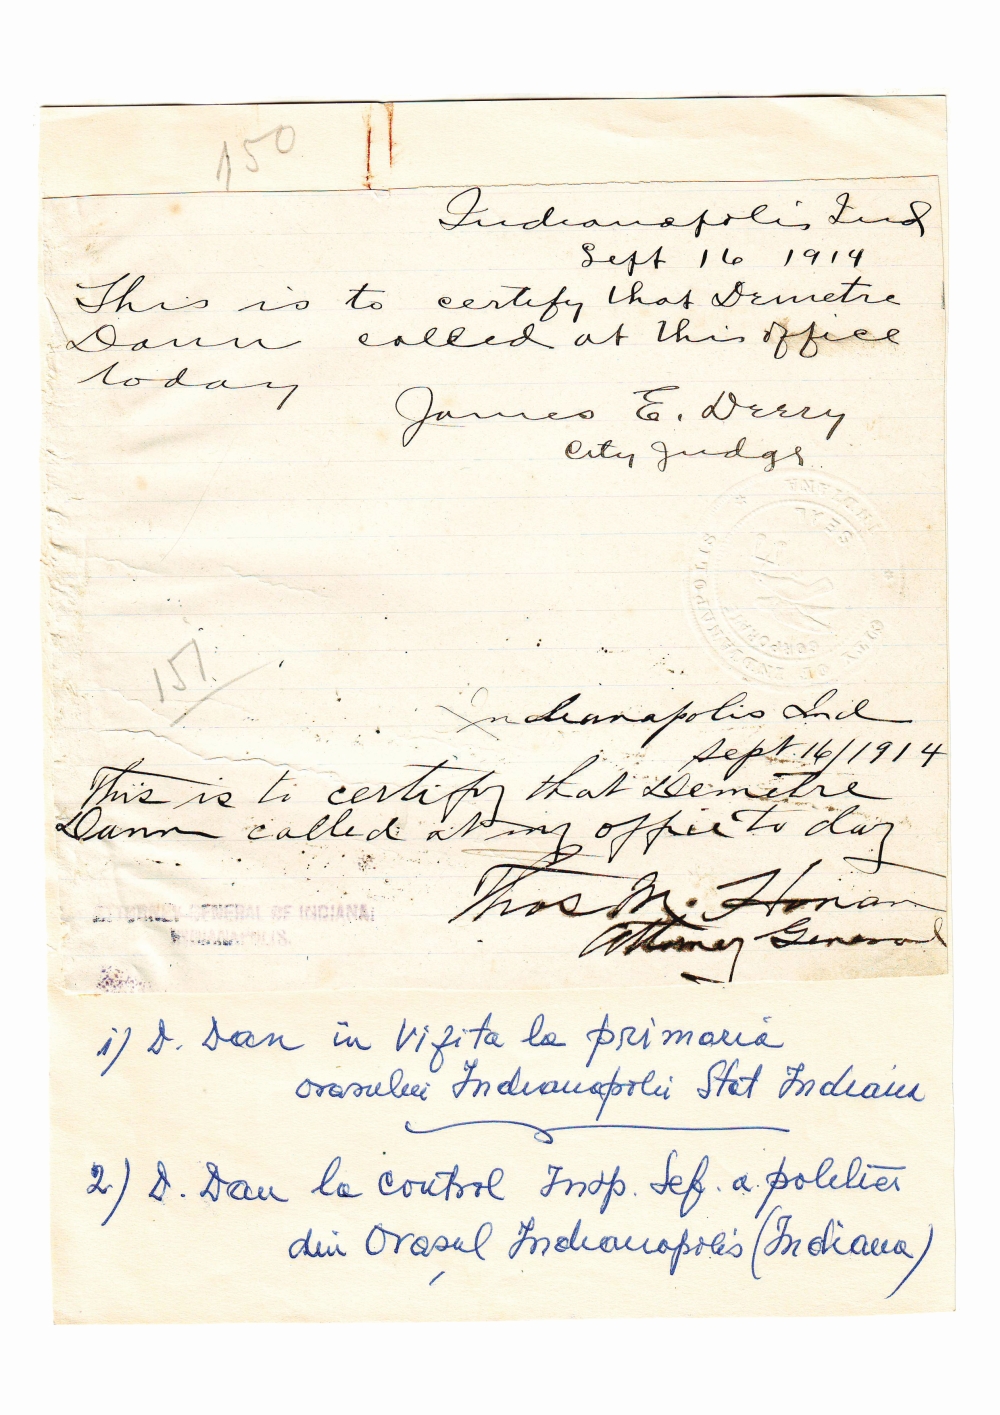 150
Indianapolis Ind
Sept 16 1914
This is to certify that Demetre
Dann called at this office
today
James E. Deery
City Judge
SEAL
CITY OF INDIANAPOLIS
151.
Indianapolis Ind
Sept. 16/1914
This is to certify that Demetre
Dann called at my office to day
Thos M. Honan
Attorney General
ATTORNEY-GENERAL OF INDIANA
INDIANAPOLIS.
1) D. Dan în Vizita la primaria
orasului Indianapolis Stat Indiana
2) D. Dan la control Insp. Sef. a politiei
din Orasul Indianapolis (Indiana)